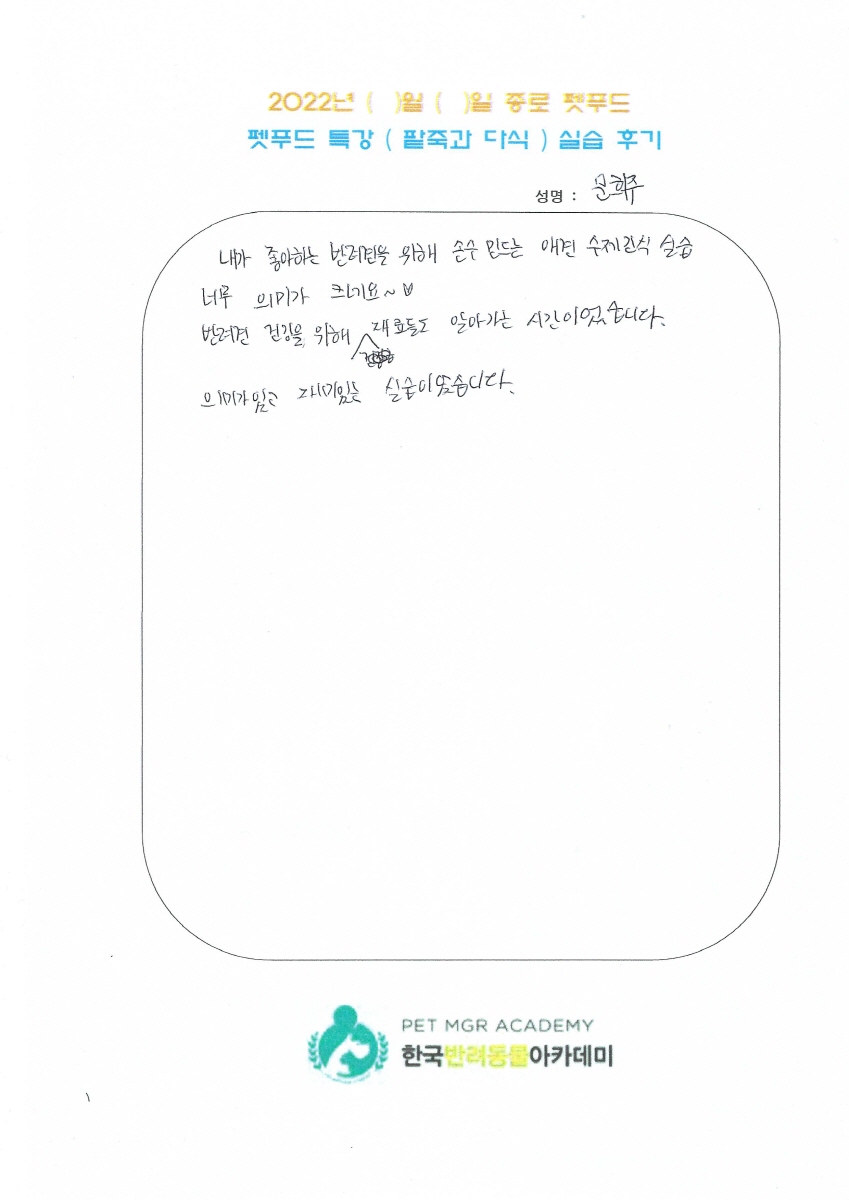 2022년 (  )월 (  )일 종로 펫푸드
펫푸드 특강 ( 팥죽과 다식 ) 실습 후기
성명 : 문희주
내가 좋아하는 반려견을 위해 손수 만드는 애견 수제간식 실습
너무 의미가 크네요~♡
반려견 건강을 위해 재료들도 알아가는 시간이었습니다.
의미가있고 재미있는 실습이었습니다.
PET MGR ACADEMY
한국반려동물아카데미